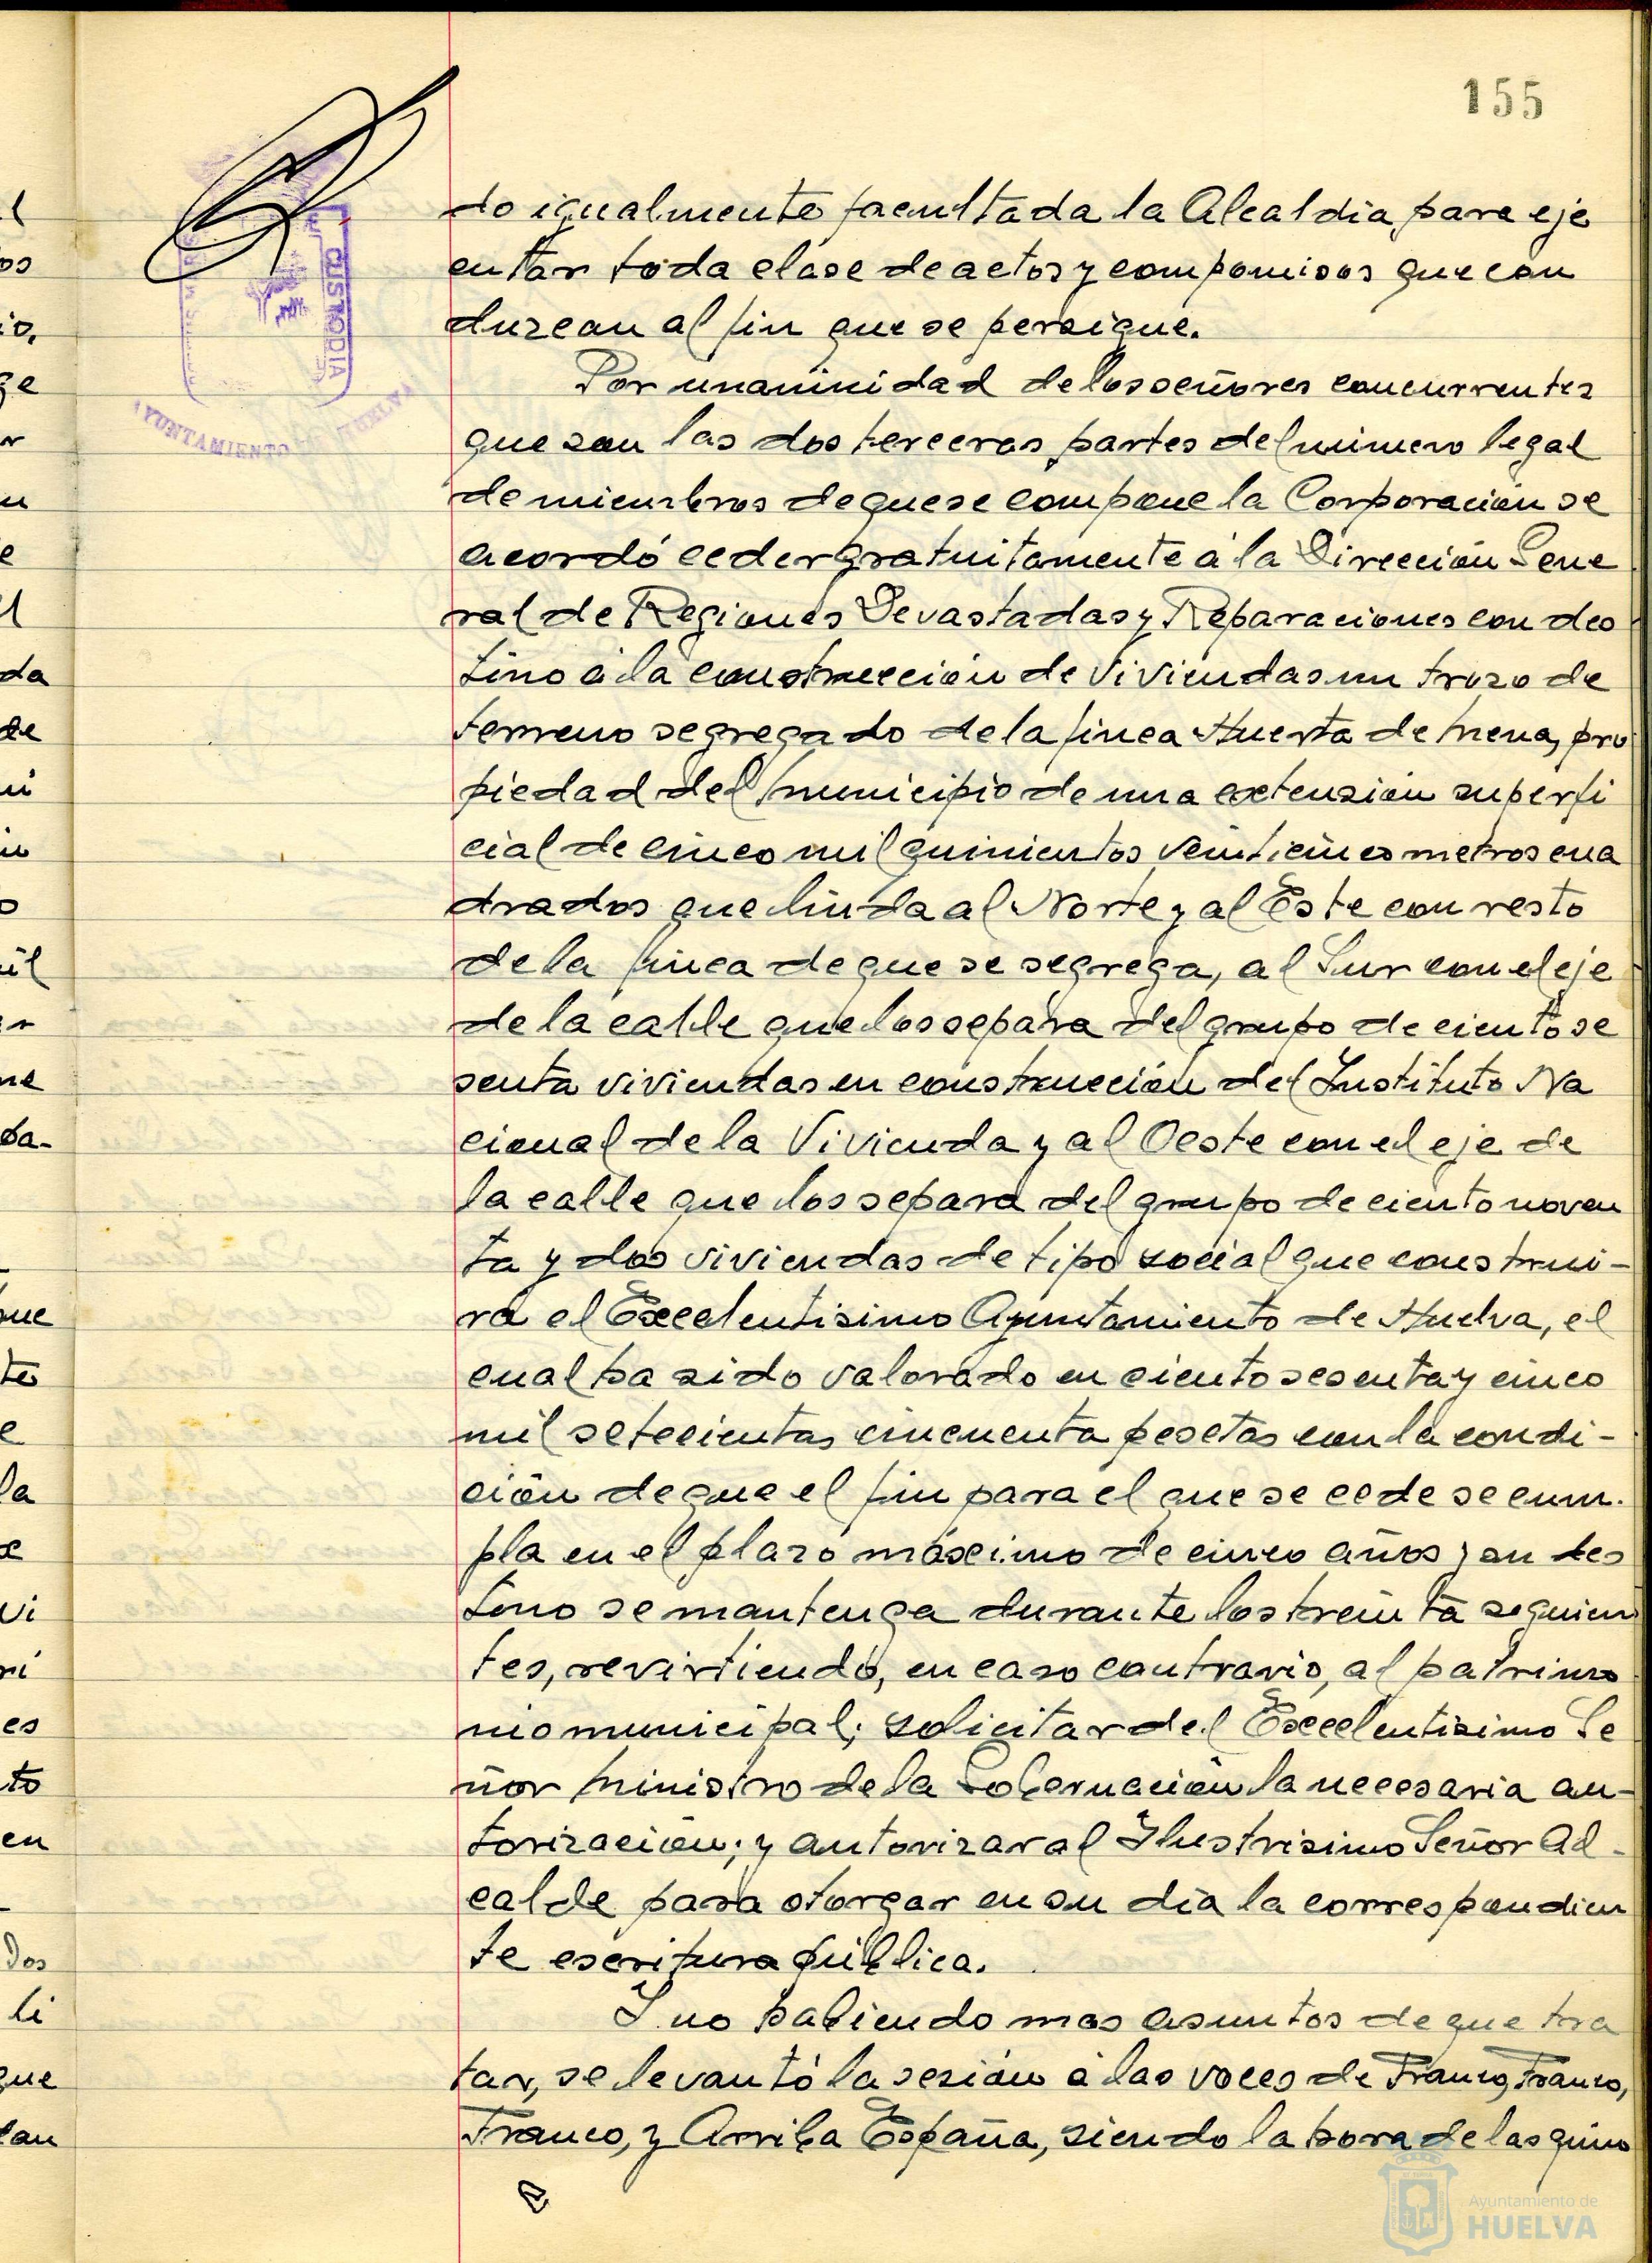 155
do igualmente facultada la Alcaldía, para eje
cutar toda clase de actos y compomisos que con
duzcan al fin que se persigue.
Por unanimidad de los señores concurrentes
que son las dos terceras partes del número legal
de miembros de que se compone la Corporación se
acordó ceder gratuitamente a la Dirección Gene
ral de Regiones Devastadas y Reparaciones con des
tino a la construcción de viviendas un trozo de
terreno segregado de la finca Huerta de Mena, pro
piedad del Municipio de una extensión superfi
cial de cinco mil quinientos veinticinco metros cua
drados que linda al Norte y al Este con resto
de la finca de que se segrega, al Sur con el eje
de la calle que los separa del grupo de ciento se
senta viviendas en construcción del Instituto Na
cional de la Vivienda y al Oeste con el eje de
la calle que los separa del grupo de ciento noven
ta y dos viviendas de tipo social que construi-
rá el Excelentísimo Ayuntamiento de Huelva, el
cual ha sido valorado en ciento sesenta y cinco
mil setecientas cincuenta pesetas con la condi-
ción de que el fin para el que se cede se cum-
pla en el plazo máximo de cinco años y su des
tino se mantenga durante los treinta siguien
tes, revirtiendo, en caso contrario, al patrimo
nio municipal; solicitar del Excelentísimo Se
ñor Ministro de la Gobernación la necesaria au-
torización; y autorizar al Ilustrísimo Señor Al-
calde para otorgar en su día la correspondien
te escritura pública.
Y no habiendo mas asuntos de que tra
tar, se levantó la sesión a las voces de Franco, Franco,
Franco, y Arriba España, siendo la hora de las quin
CUSTODIA
AYUNTAMIENTO DE HUELVA
Ayuntamiento de
HUELVA